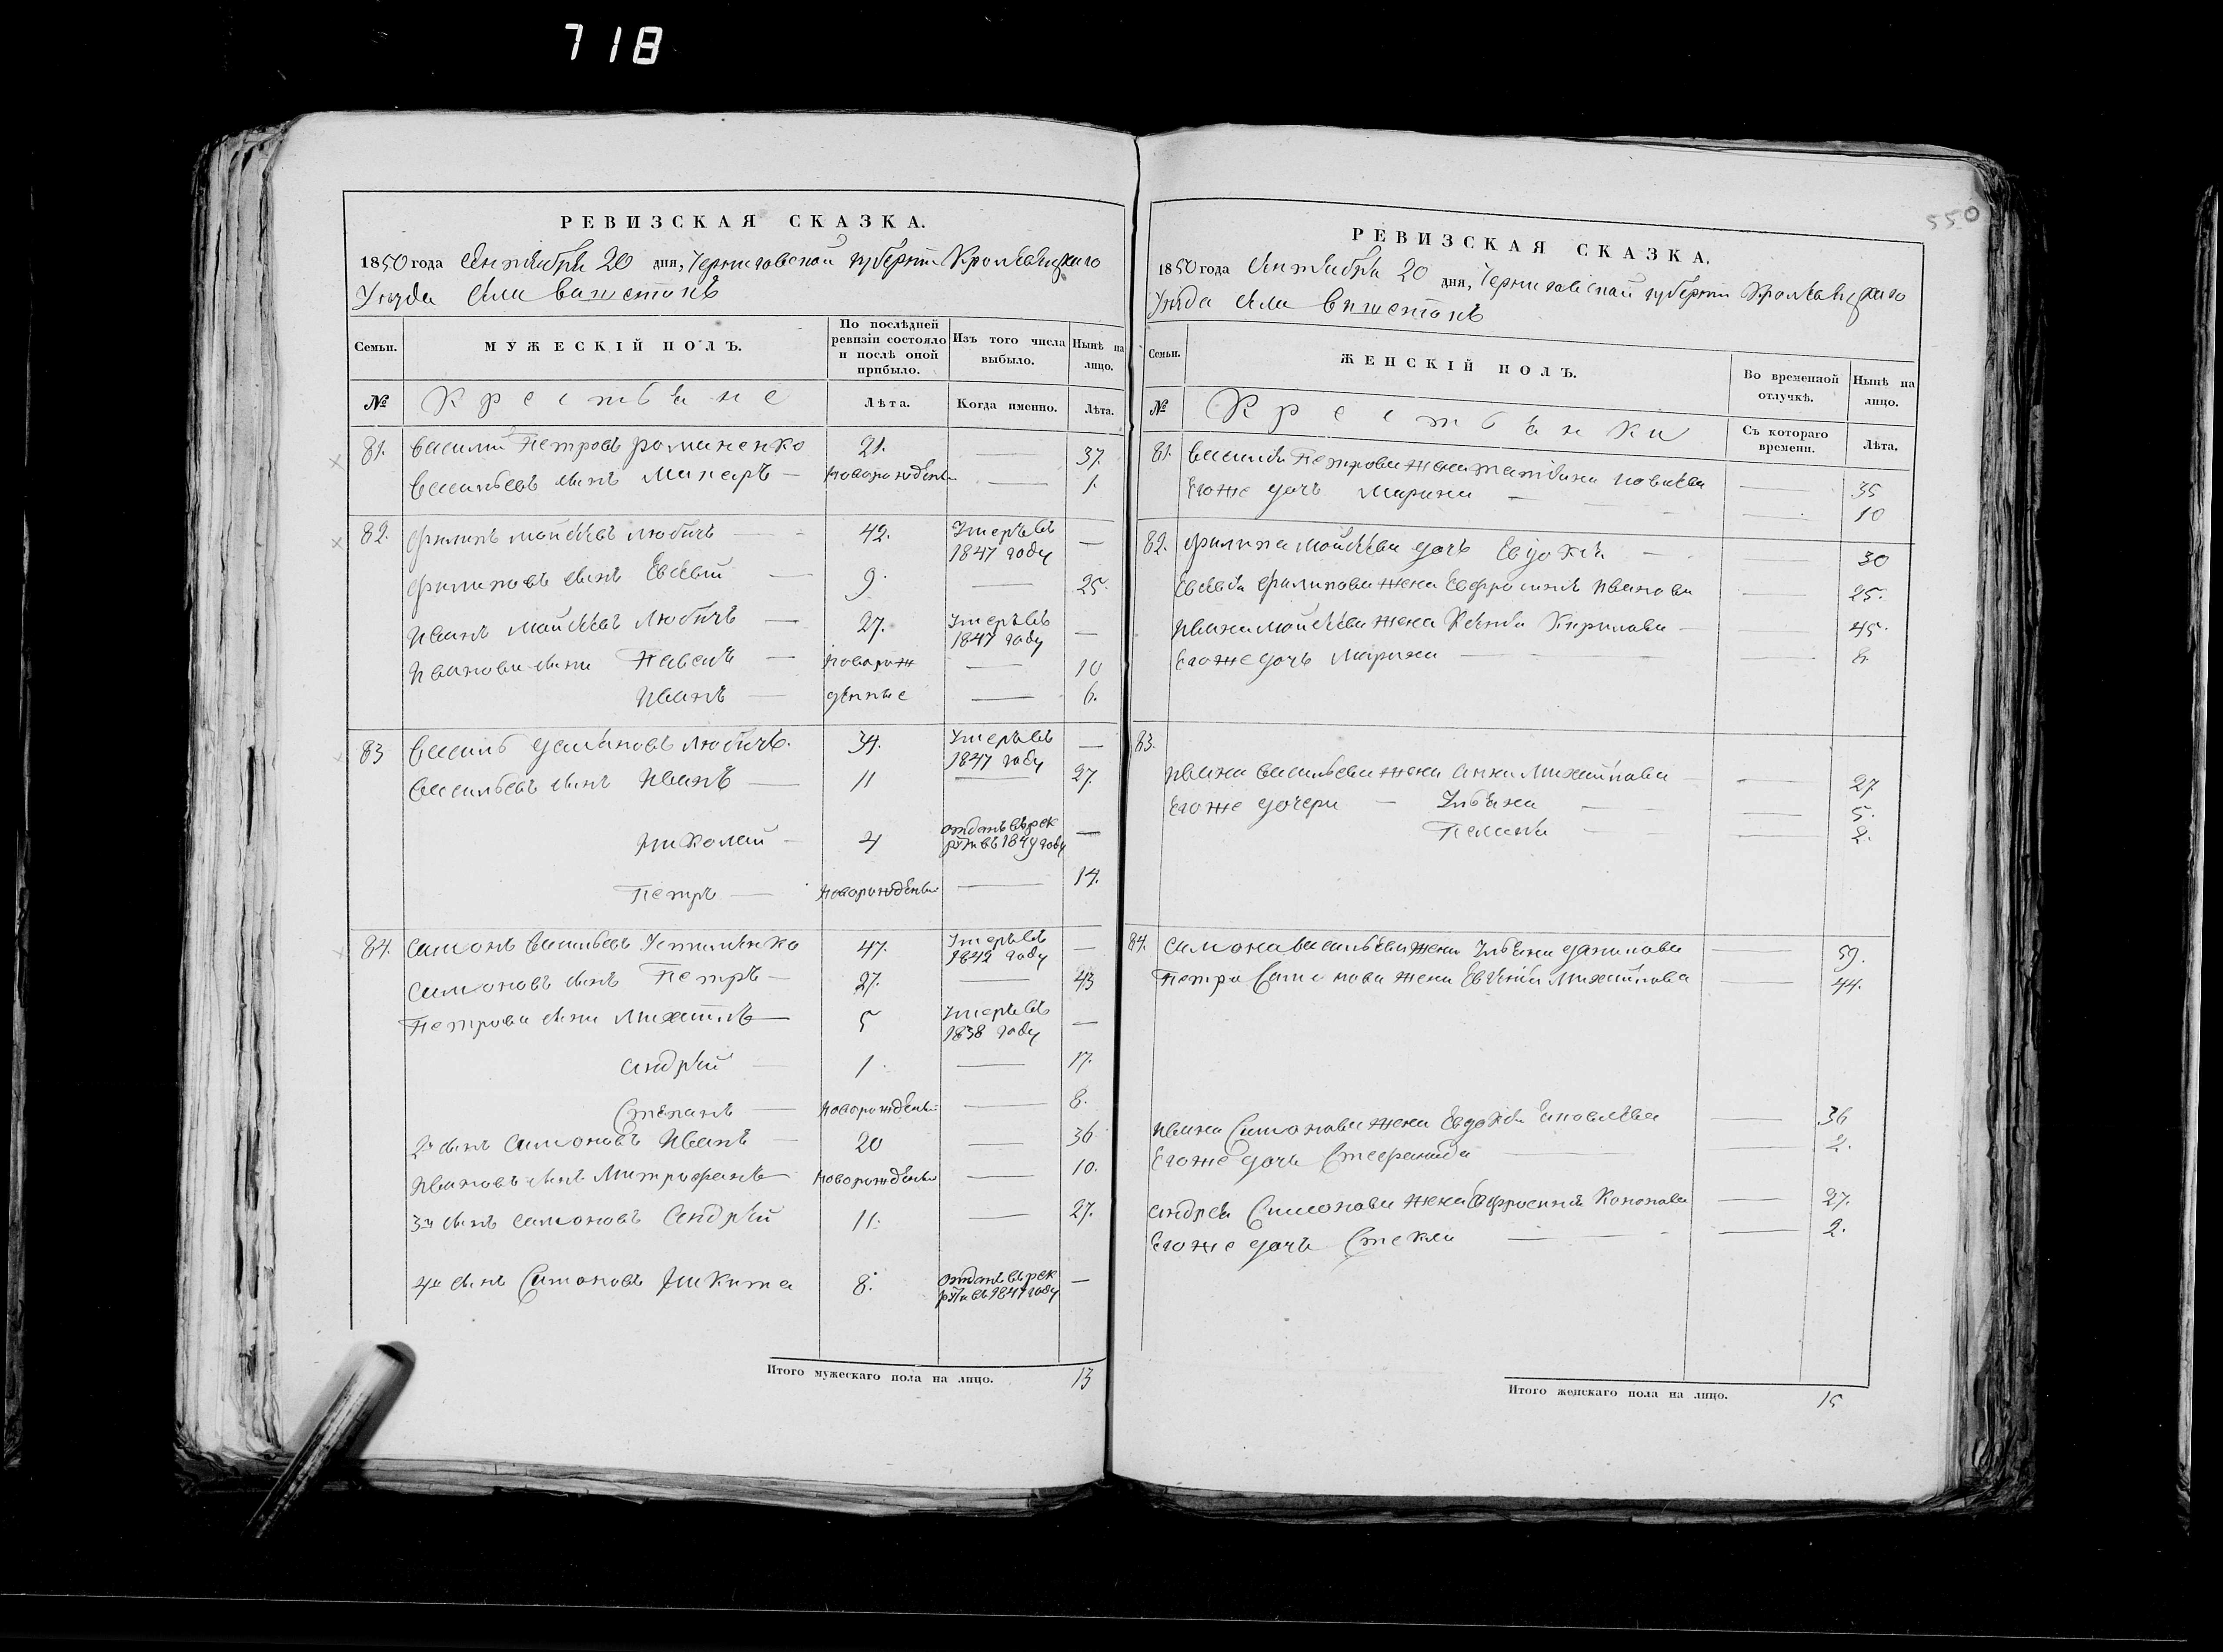 718
550
РЕВИЗСКАЯ СКАЗКА.
1850 года Сентября 20 дня, Черниговской губернии Кролевецкаго
Уезда Села
Семьи. МУЖЕСКІЙ ПОЛЪ. По послѣдней ревизіи состояло и послѣ оной прибыло. Изъ того числа выбыло. Нынѣ на лицо.
№ Крестьяне Лѣта. Когда именно. Лѣта.
81. Василий Петровъ Романенко 21. — 37.
Васильевъ сынъ Макаръ — новорожденъ — 1.
82. Филипъ Мойсѣевъ Любичъ — 42. Умеръ въ 1847 году —
Филиповъ сынъ Евсѣвій — 9. — 25.
Иванъ Мойсѣевъ Любичъ — 27. Умеръ въ 1847 году —
Ивановы сыны Павелъ — новорож — 10
Иванъ — денные — 6.
83 Василь Демяновъ Любичъ. 34. Умеръ въ 1847 году —
Васильевъ сынъ Иванъ — 11 — 27
Николай — 4 отданъ въ рек руты въ году —
Петръ — новорожденъ — 14.
84. Самонъ Васильевъ Устименко 47. Умеръ въ 1842 году —
Самоновъ сынъ Петръ — 27. — 43
Петровы сыны Михаилъ — 5 Умеръ въ 1838 году —
Андрѣй — 1. — 17.
Степанъ — новорожденъ — 8.
2й сынъ Самоновъ Иванъ — 20 — 36
Ивановъ сынъ Митрофанъ — новорожденъ — 10.
3й сынъ Самоновъ Андрѣй 11. — 27.
4й сынъ Самоновъ Никита 8. отданъ въ рек руты въ 1847 году —
Итого мужескаго пола на лицо. 13
РЕВИЗСКАЯ СКАЗКА.
1850 года Сентября 20 дня, Черниговской губернии Кролевецкаго
Уезда Села
Семьи. ЖЕНСКІЙ ПОЛЪ. Во временной отлучкѣ. Нынѣ на лицо.
№ Крестьянки Съ котораго времени. Лѣта.
81. Василія Петрова жена Татьяна — 35
Егоже дочь Марина — — 10
82. Филипа Мойсѣева дочь Евдокія — 30
Евсѣвія Филипова жена Евфросинія Иванова — 25.
Ивана Мойсѣева жена Ксенія Кирилова — 45.
Егоже дочь Марина — — 8.
83.
Ивана Васильева жена Анна Михайлова — 27
Егоже дочери — Ульяна — — 5.
Пелагія — — 2.
84. Самона Васильева жена Ульяна Данилова — 59.
Петра Самонова жена Евгенія Михайлова — 44.
Ивана Самонова жена Евдокія Яковлѣва — 36
Егоже дочь Степанида — — 2.
Андрея Самонова жена Ефросинія Кононова — 27.
Егоже дочь Стекла — — 2.
Итого женскаго пола на лицо. 15